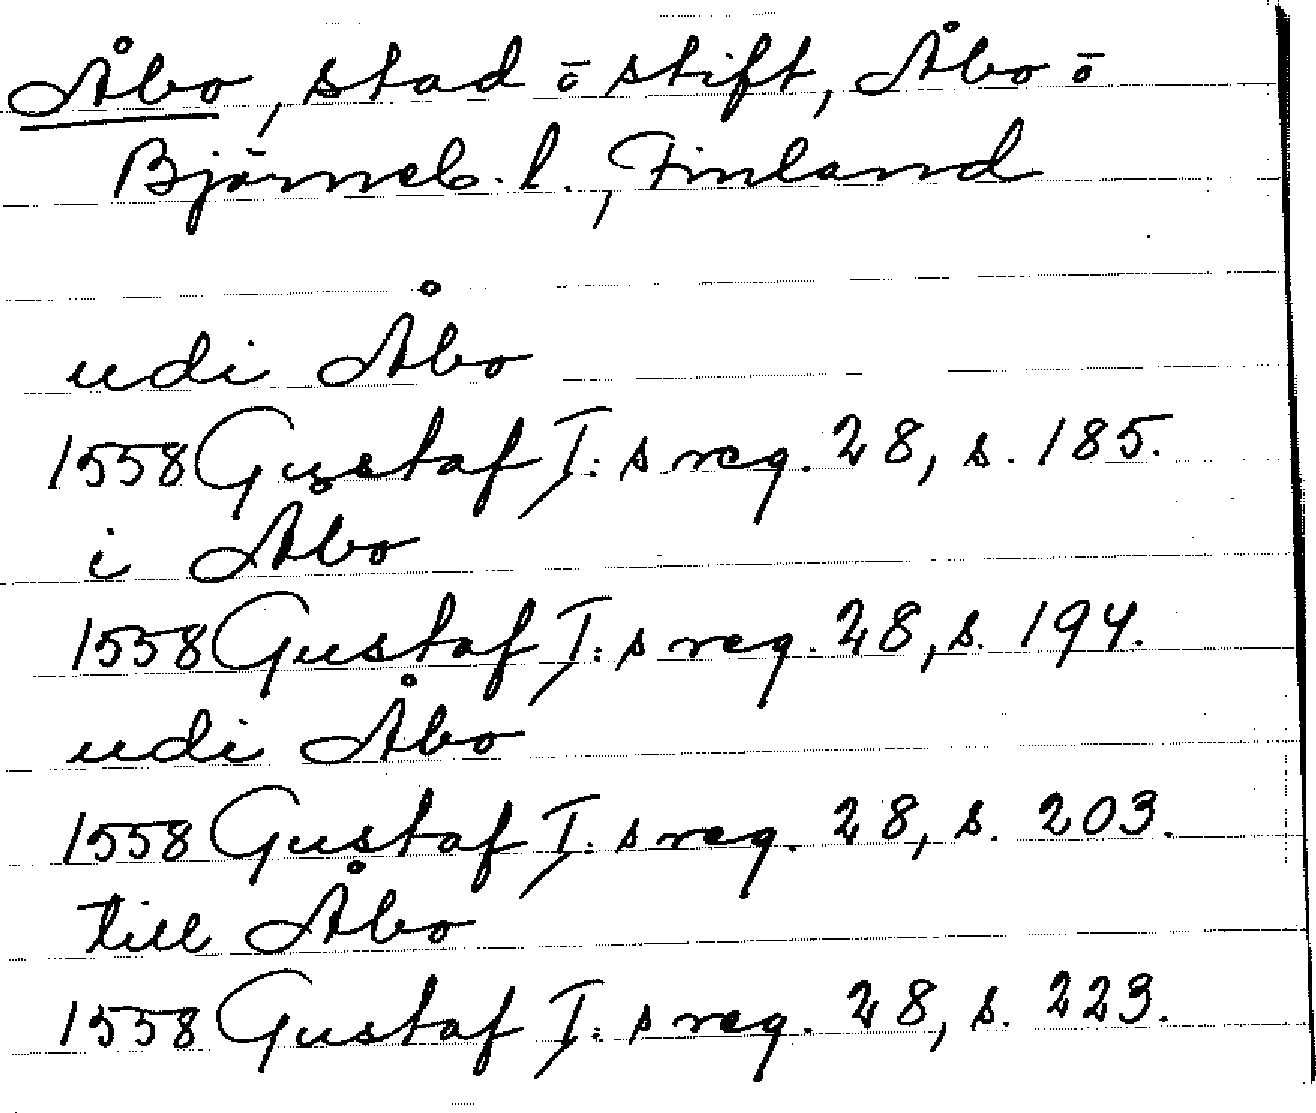 Åbo, stad ō stift, Åbo ō
Björneb. l., Finland
udi Åbo
1558 Gustaf I:s reg. 28, s. 185.
i Åbo
1558 Gustaf I:s reg. 28, s. 194.
udi Åbo
1558 Gustaf I:s reg. 28, s. 203.
till Åbo
1558 Gustaf I:s reg. 28, s. 223.